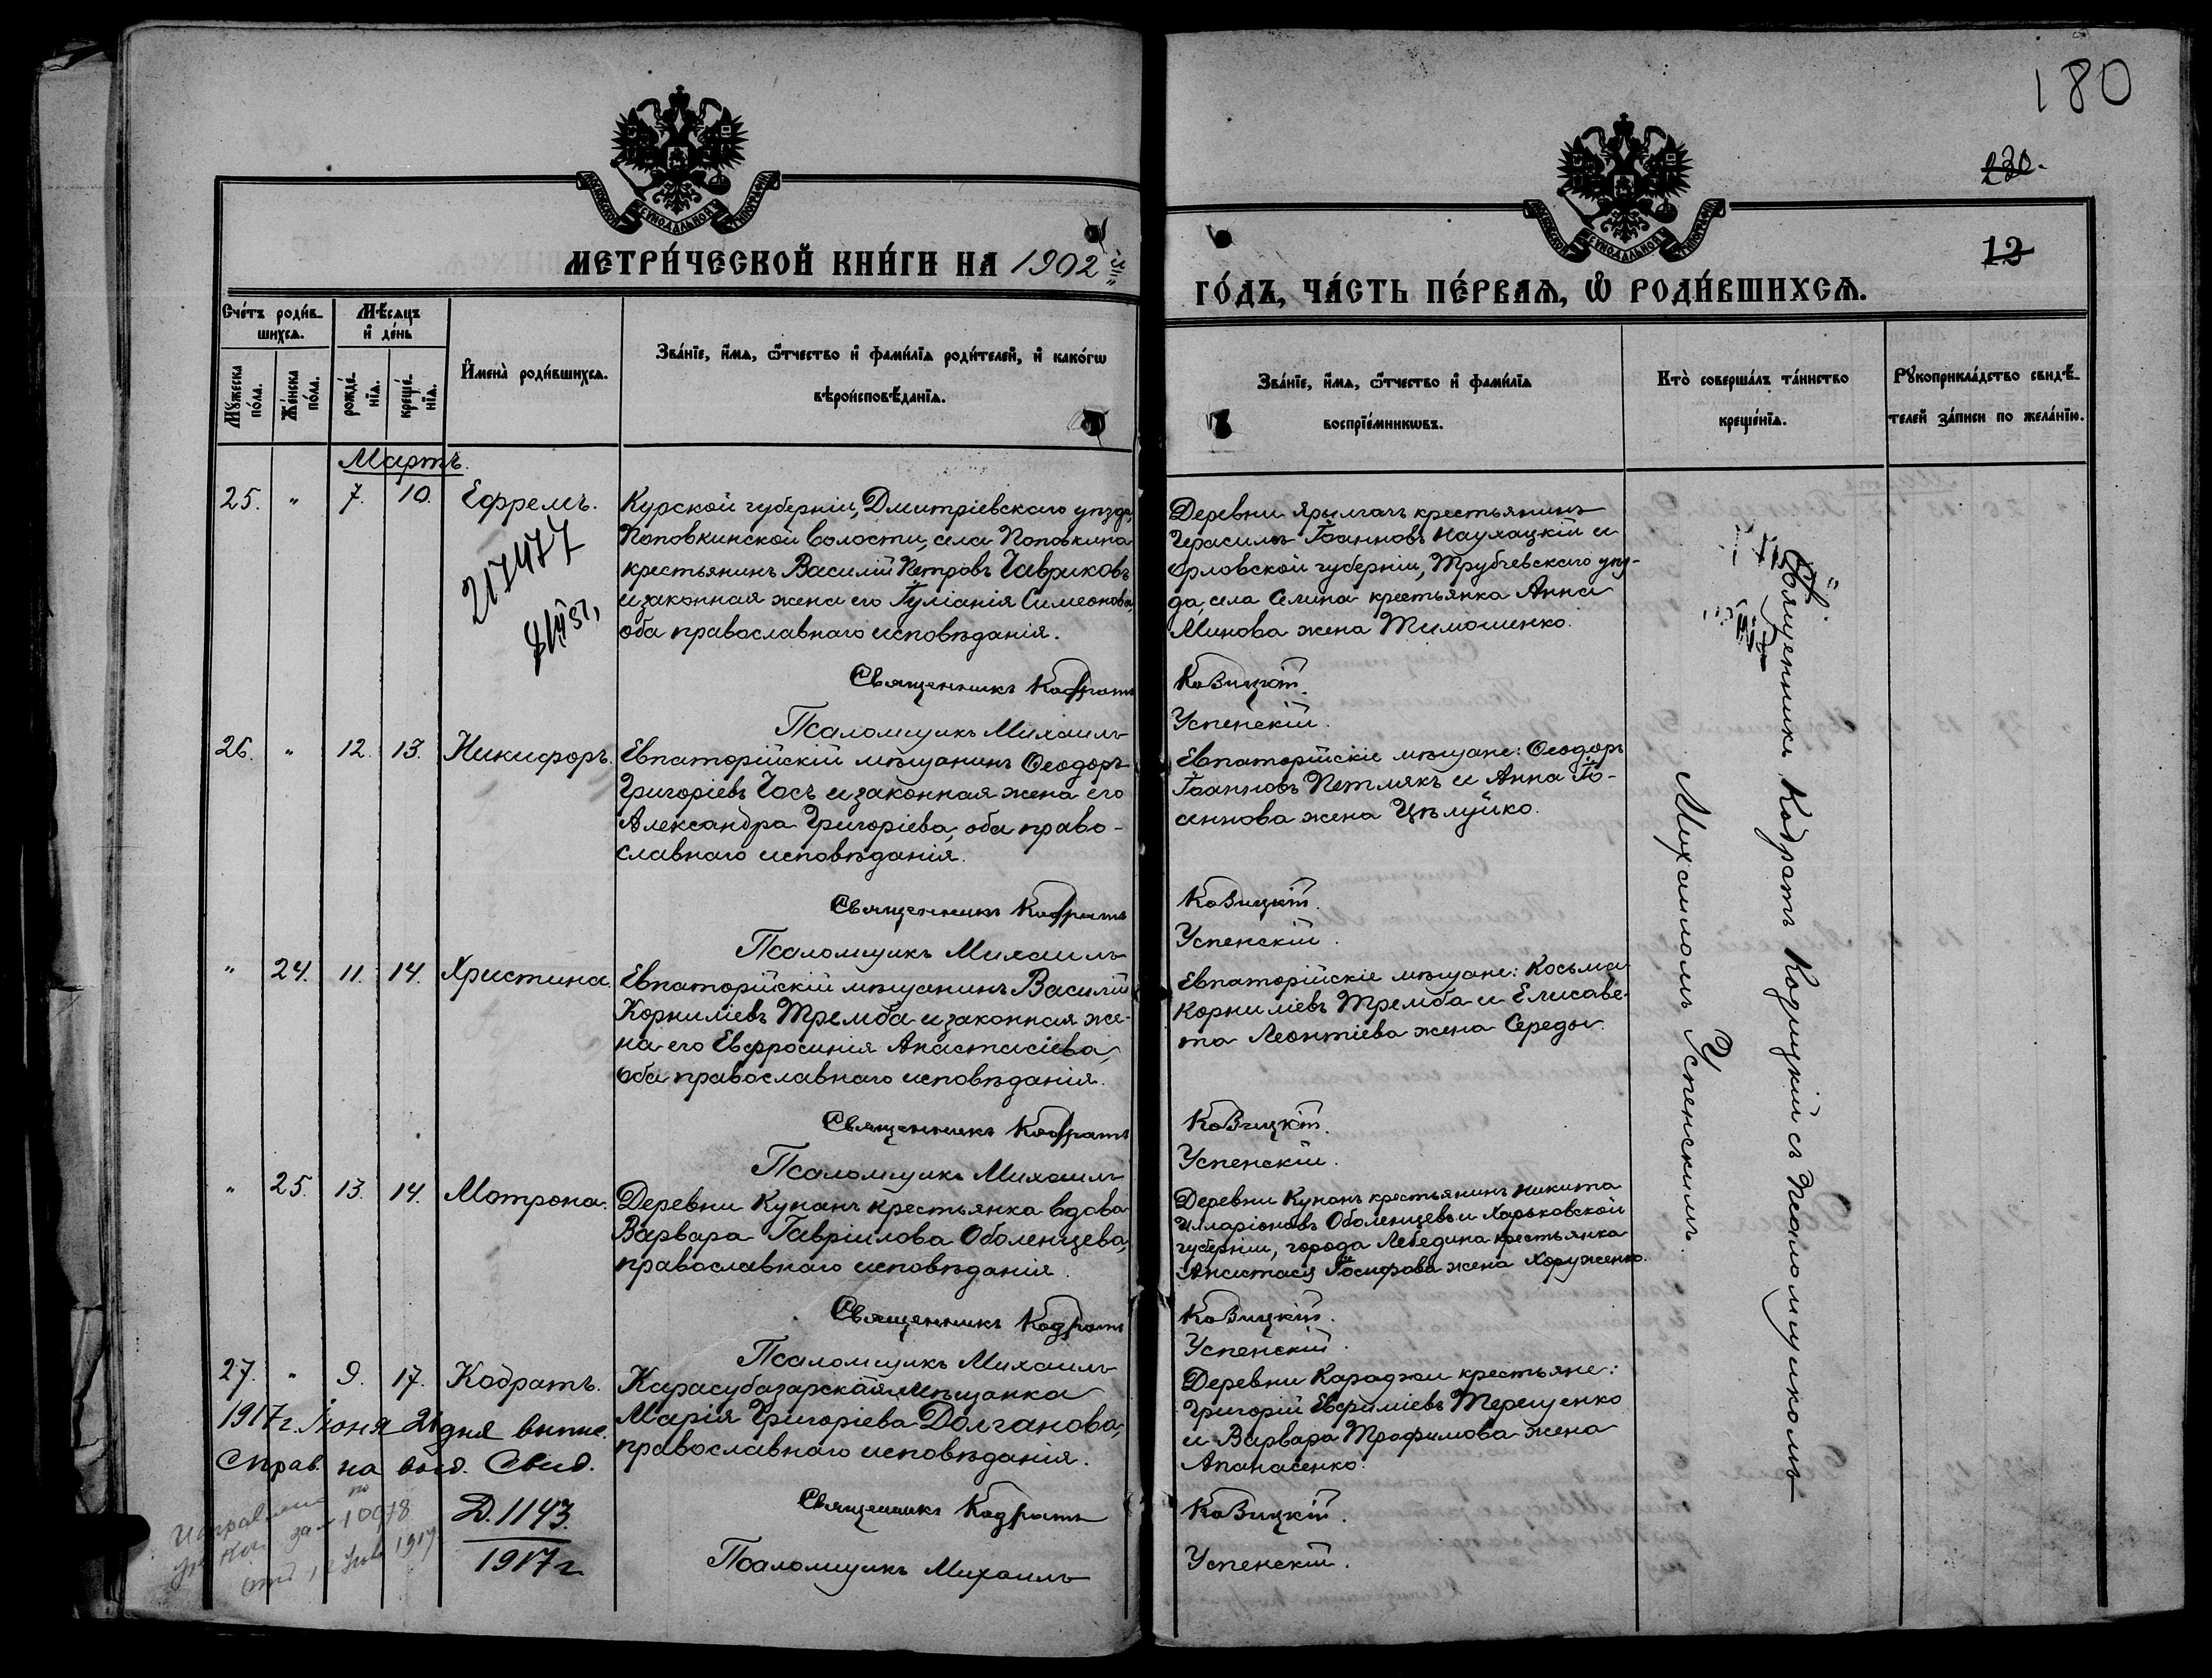 180
230.
12
МОСКОВСКОЙ СѴНОДАЛЬНОЙ ТИПОГРАФІИ
МЕТРИ́ЧЕСКОЙ КНИ́ГИ НА 1902
МОСКОВСКОЙ СѴНОДАЛЬНОЙ ТИПОГРАФІИ
ГО́ДЪ, ЧА́СТЬ ПЕ́РВАѦ, Ѡ҆ РОДИ́ВШИХСѦ.
Сче́тъ роди́в-
шихсѧ.
Мꙋ́жеска по́ла.
Же́нска по́ла.
Мѣ́сѧцъ
и҆ де́нь
рожде́-
нїѧ.
креще́-
нїѧ.
И҆мена̀ роди́вшихсѧ.
Зва́нїе, и҆́мѧ, ѻ҆́тчество и҆ фами́лїѧ роди́телей, и҆ како́гѡ
вѣроисповѣ́данїѧ.
Зва́нїе, и҆́мѧ, ѻ҆́тчество и҆ фами́лїѧ
воспрїе́мникѡвъ.
Кто̀ соверша́лъ та́инство
креще́нїѧ.
Рꙋкоприкла́дство свидѣ́-
телей за́писи по жела́нїю.
Мартъ.
25. " 7. 10. Ефремъ.
217477
Курской губерніи, Дмитріевскаго уѣзда,
Поповкинской волости, села Поповкина
крестьянинъ Василій Петровъ Гавриковъ
и законная жена его Іуліанія Симеонова,
оба православнаго исповѣданія.
Священникъ Кодратъ
Псаломщикъ Михаилъ
Деревни Ярылгачъ крестьянинъ
Герасимъ Іоанновъ Наухацкій и
Орловской губерніи, Трубчевскаго уѣз-
да, села Селина крестьянка Анна
Минова жена Тимошенко.
Ковицкій.
Успенскій.
26. " 12. 13. Никифоръ.
Евпаторійскій мѣщанинъ Ѳеодоръ
Григоріевъ Гасъ и законная жена его
Александра Григоріева, оба право-
славнаго исповѣданія.
Священникъ Кодратъ
Псаломщикъ Михаилъ
Евпаторійскіе мѣщане: Ѳеодоръ
Іоанновъ Петлякъ и Анна Іо-
аннова жена Цѣлуйко.
Ковицкій.
Успенскій.
" 24. 11. 14. Христина.
Евпаторійскій мѣщанинъ Василій
Корниліевъ Тремба и законная же-
на его Евфросинія Анастасіева,
оба православнаго исповѣданія.
Священникъ Кодратъ
Псаломщикъ Михаилъ
Евпаторійскіе мѣщане: Косьма
Корниліевъ Тремба и Елисаве-
та Леонтіева жена Середы.
Ковицкій.
Успенскій.
" 25. 13. 14. Матрона.
Деревни Кунанъ крестьянка вдова
Варвара Гавріилова Оболенцева,
православнаго исповѣданія.
Священникъ Кодратъ
Псаломщикъ Михаилъ
Деревни Кунанъ крестьянинъ Никита
Иларіоновъ Оболенцевъ и Харьковской
губерніи, города Лебедина крестьянка
Анастасія Іосифова жена Хоруженко.
Ковицкій.
Успенскій.
27. " 9. 17. Кодратъ.
Карасубазарская мѣщанка
Марія Григоріева Долганова,
православнаго исповѣданія.
Священникъ Кодратъ
Псаломщикъ Михаилъ
Деревни Караджи крестьяне:
Григорій Евфиміевъ Терещенко
и Варвара Трофимова жена
Апанасенко.
Ковицкій.
Успенскій.
1917 г. Іюня 21 дня выпис.
Справ. на выд. Свид.
Д. 1143.
1917 г.
за № 10078
Священникъ Кодратъ Ковицкій съ псаломщикомъ
Михаиломъ Успенскимъ.